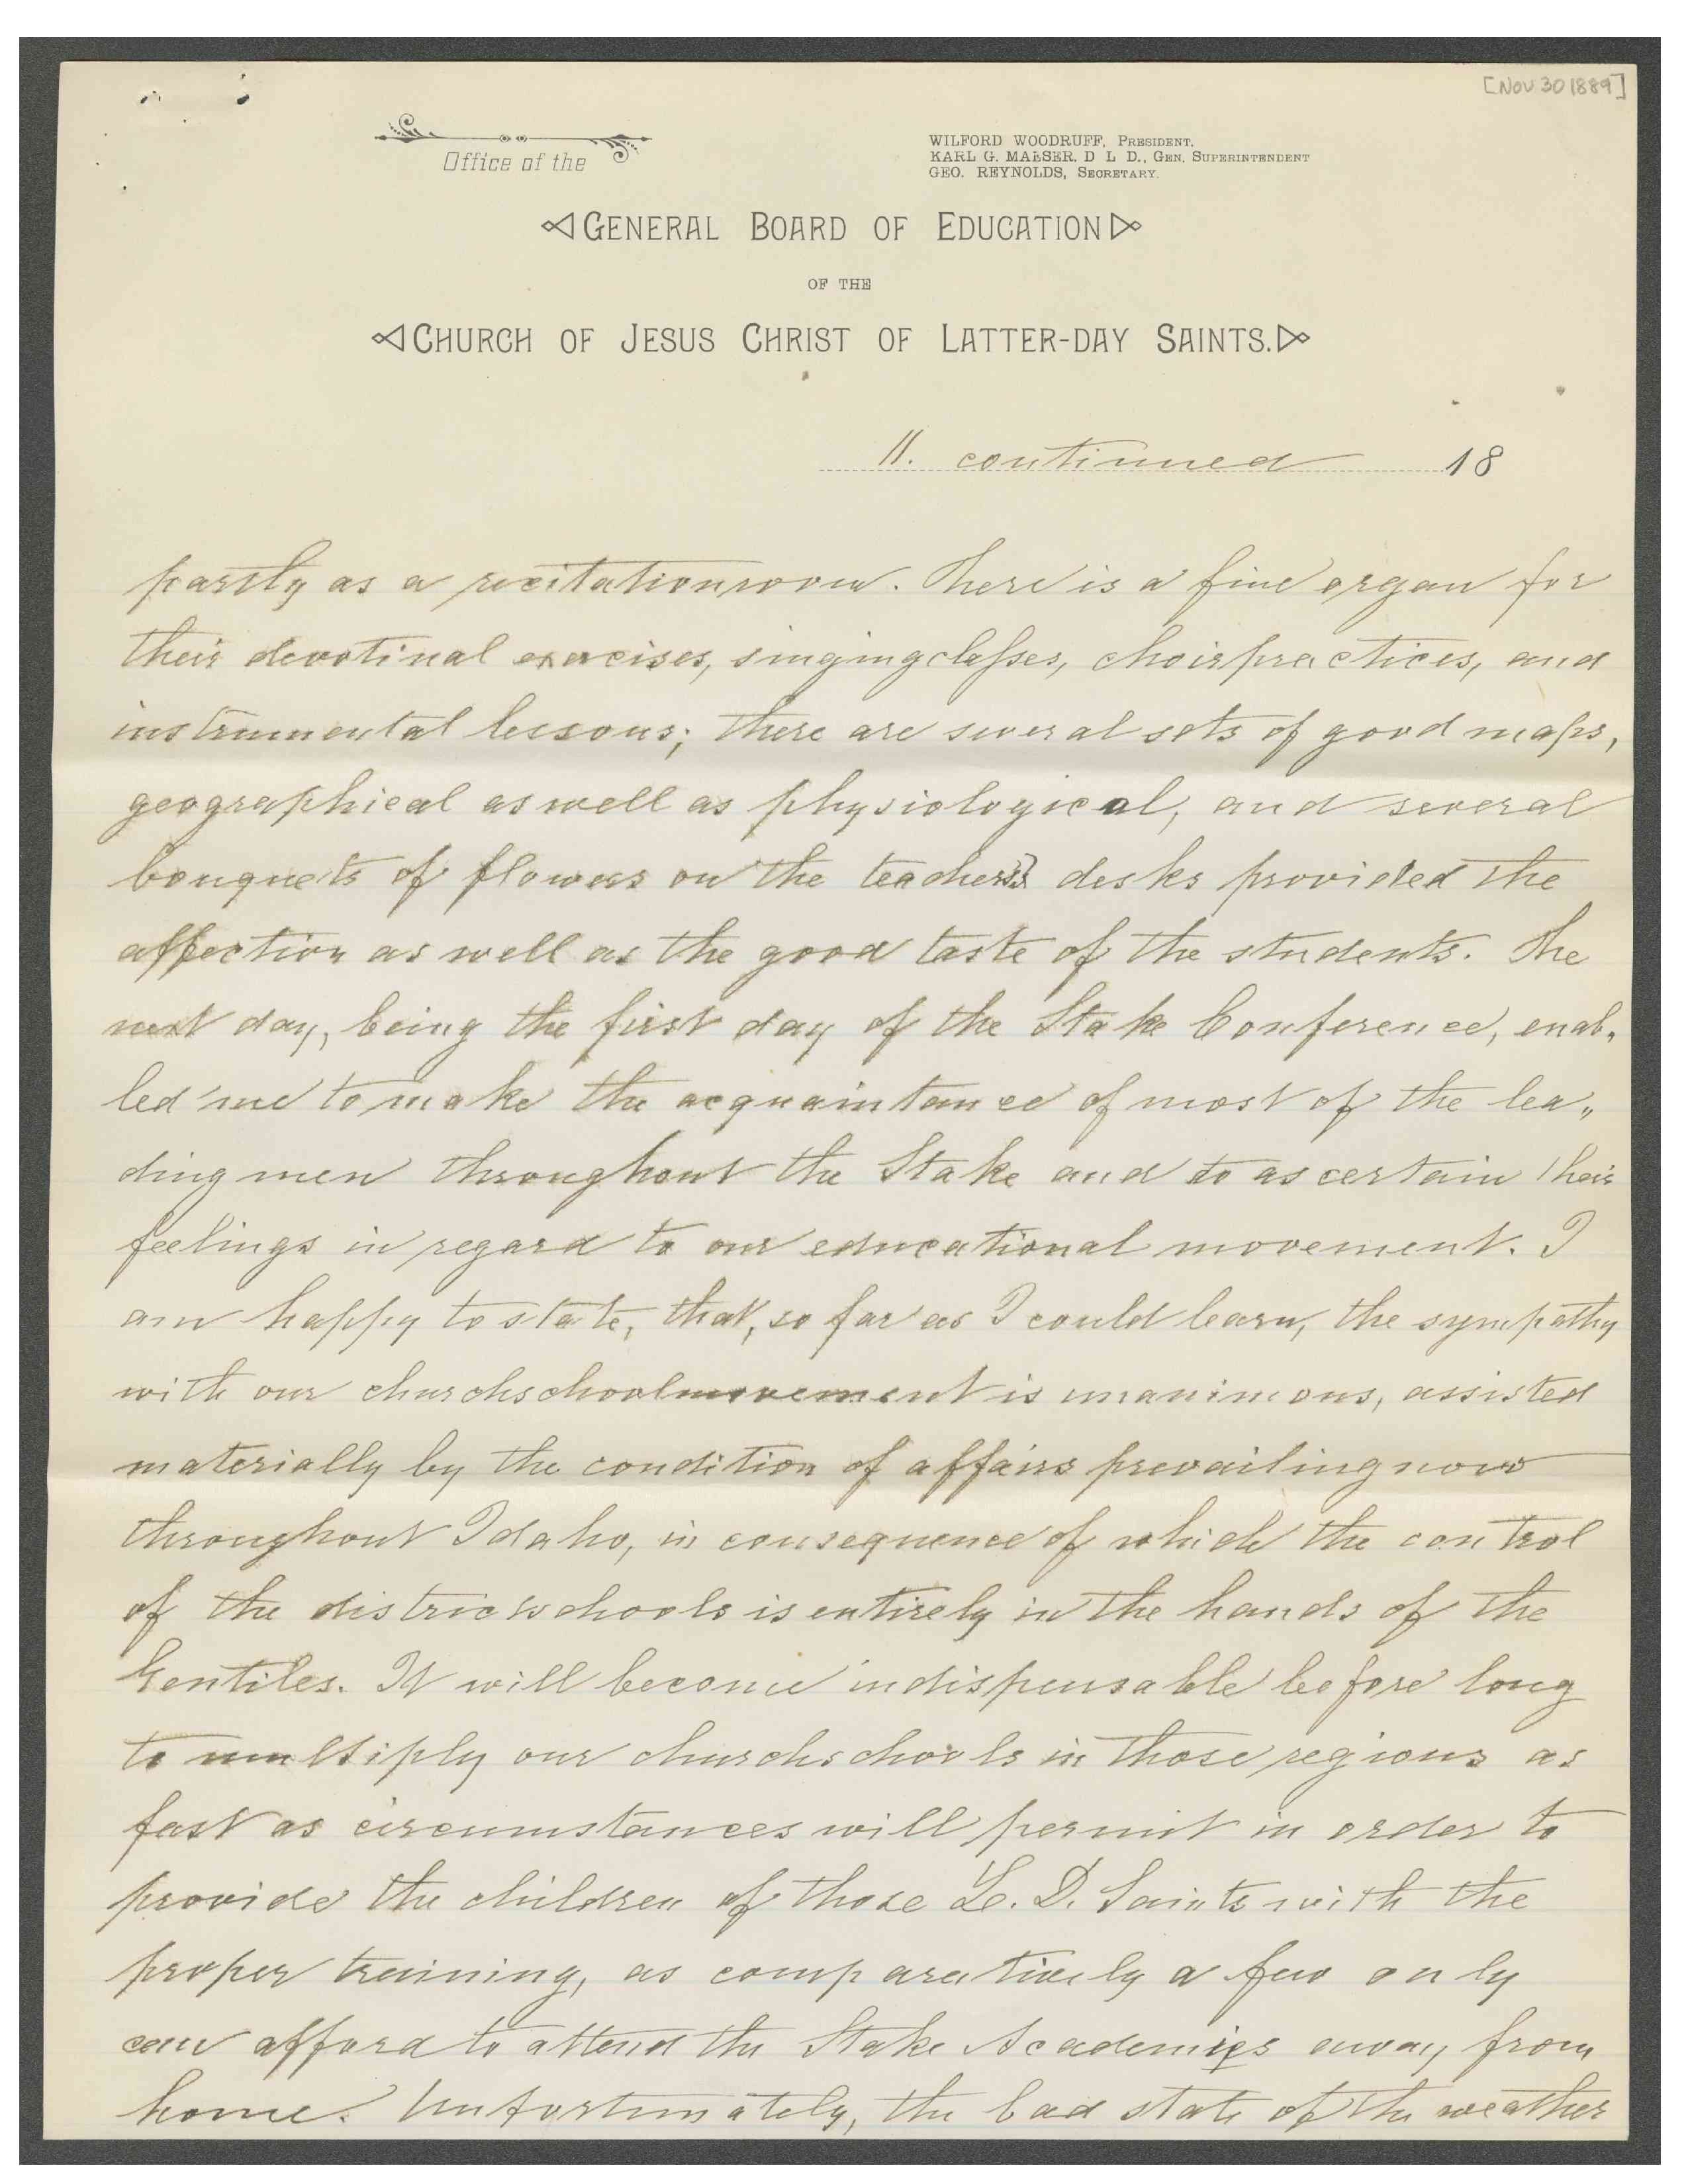 [Nov 30 1889]
Office of the
WILFORD WOODRUFF, PRESIDENT.
KARL G. MAESER, D L D., GEN. SUPERINTENDENT
GEO. REYNOLDS, SECRETARY.
GENERAL BOARD OF EDUCATION
OF THE
CHURCH OF JESUS CHRIST OF LATTER-DAY SAINTS.
11. continued 18
partly as a recitationroom. There is a fine organ for
their devotinal exercises, singingclasses, choirpractices, and
instrumental lessons; there are several sets of good maps,
geographical as well as physiological, and several
bouquets of flowers on the teachers desks provided the
affection as well as the good taste of the students. The
next day, being the first day of the Stake Conference, enab-
led me to make the acquaintance of most of the lea-
ding men throughout the Stake and to ascertain their
feelings in regard to our educational movement. I
am happy to state, that, so far as I could learn, the sympathy
with our churchschoolmovement is unanimous, assisted
materially by the condition of affairs prevailing now
throughout Idaho, in consequence of which the control
of the districtschools is entirely in the hands of the
Gentiles. It will become indispensable before long
to multiply our churchschools in those regions as
fast as circumstances will permit in order to
provide the children of those L. D. Saints with the
proper training, as comparatively a few only
can afford to attend the Stake Academies away from
home. Unfortunately, the bad state of the weather